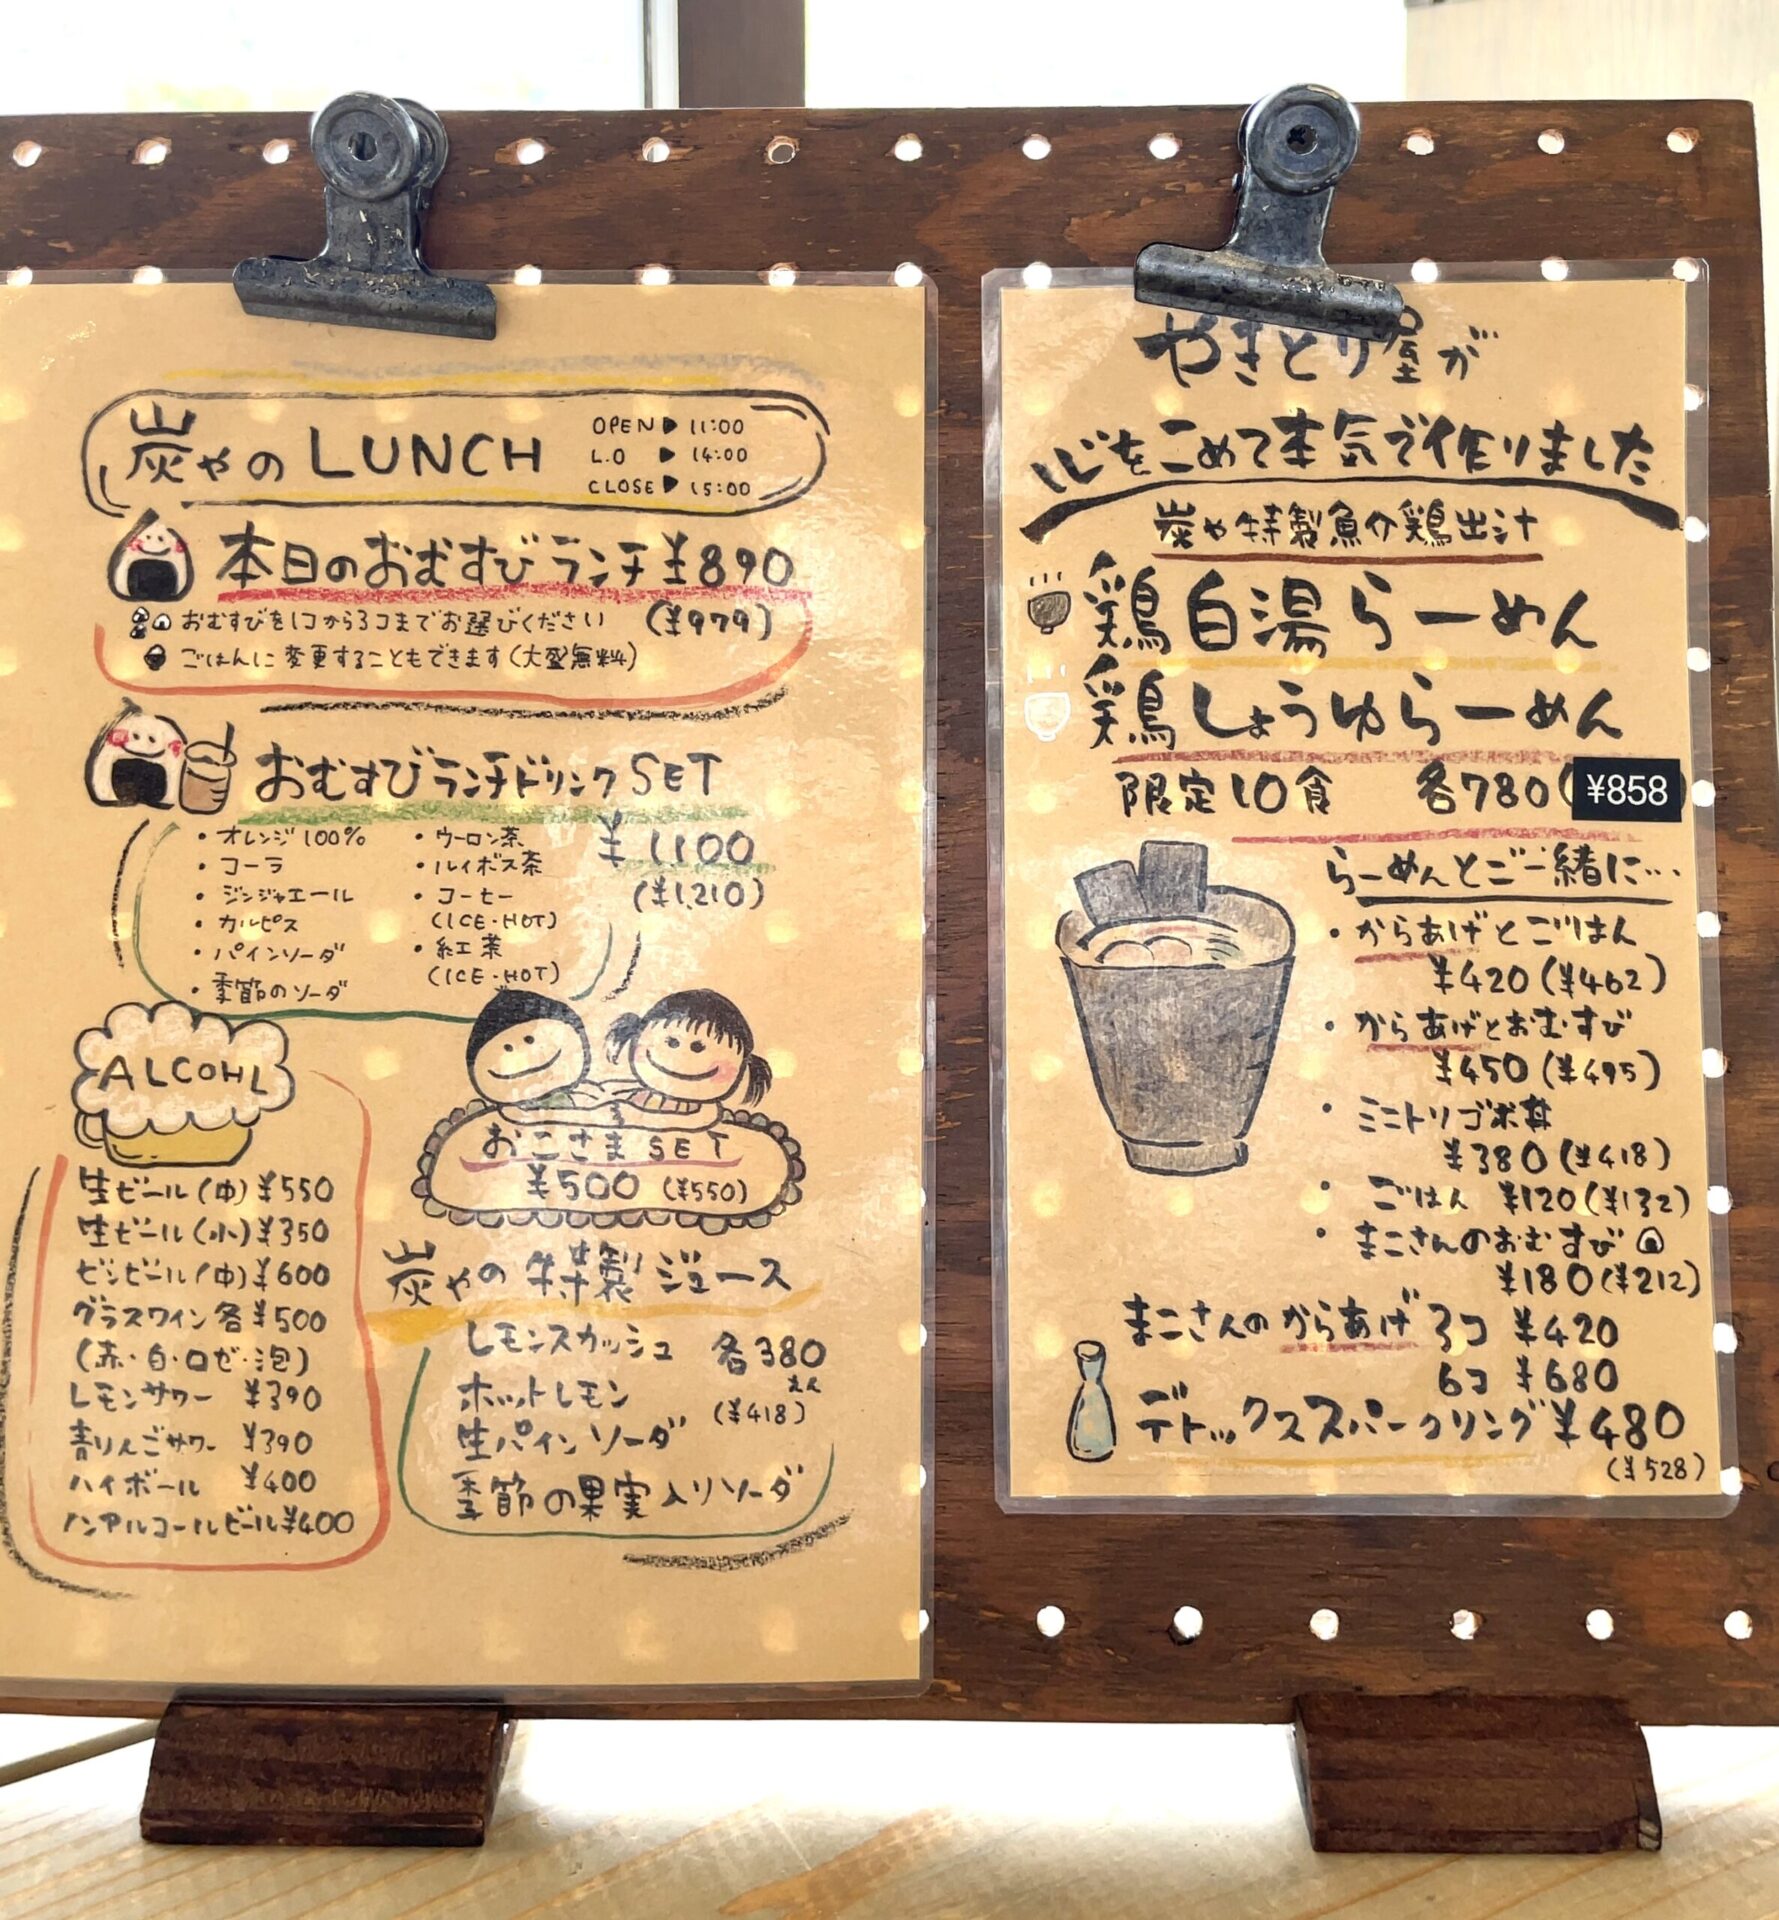 炭やの LUNCH
OPEN▶11:00
L.O ▶14:00
CLOSE▶15:00
本日のおむすびランチ ¥890
(¥979)
おむすびを1コから3コまでお選びください
ごはんに変更することもできます(大盛無料)
おむすびランチドリンクSET
¥1100
(¥1,210)
・オレンジ100%
・コーラ
・ジンジャエール
・カルピス
・パインソーダ
・季節のソーダ
・ウーロン茶
・ルイボス茶
・コーヒー
(ICE・HOT)
・紅茶
(ICE・HOT)
ALCOHL
生ビール(中)¥550
生ビール(小)¥350
ビンビール(中)¥600
グラスワイン各¥500
(赤・白・ロゼ・泡)
レモンサワー ¥390
青りんごサワー ¥390
ハイボール ¥400
ノンアルコールビール¥400
おこさまSET
¥500 (¥550)
炭やの特製ジュース
レモンスカッシュ 各380
えん
ホットレモン (¥418)
生パインソーダ
季節の果実入りソーダ
やきとり屋が
心をこめて本気で作りました
炭や特製魚介鶏出汁
鶏白湯らーめん
鶏しょうゆらーめん
限定10食 各780(¥858
らーめんとご一緒に…
・からあげとごはん
¥420(¥462)
・からあげとおむすび
¥450(¥495)
・ミニトリゴボ丼
¥380(¥418)
・ごはん ¥120(¥132)
・まこさんのおむすび
¥180(¥212)
まこさんのからあげ 3コ ¥420
6コ ¥680
デトックススパークリング¥480
(¥528)